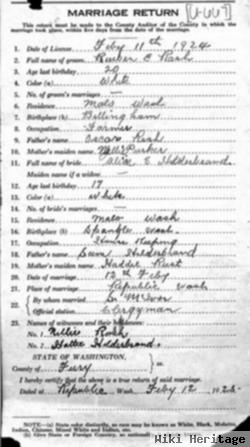 MARRIAGE RETURN
This return must be made to the County Auditor of the County in which the
marriage took place, within five days from the date of the marriage.
1. Date of License Feby 11th 1924
2. Full name of groom E Rash
3. Age last birthday 20
4. Color (a) White
5. No. of groom's marriages
6. Residence Malo Wash
7. Birthplace (b) Billingham
8. Occupation Farmer
9. Father's name Oscar Rash
10. Mother's maiden name Parker
11. Full name of bride Alice E Hilderbrand
Maiden name if a widow
12. Age last birthday 17
13. Color (a) White
14. No. of bride's marriages
15. Residence Malo Wash
16. Birthplace (b) Spangle Wash.
17. Occupation House Keeping
18. Father's name Hilderbrand
19. Mother's maiden name Hattie Rust
20. Date of marriage 12th Feby
21. Place of marriage Republic Wash
22. By whom married
Official station Clergyman
23. Names of witnesses and their residences:
No. 1 Nellie Rash
No. 2 Hattie Hilderbrand
STATE OF WASHINGTON,
County of Ferry ss.
I hereby certify that the above is a true return of said marriage.
Dated at Republic Wash. Feby 12
NOTE—(a) State color distinctly, so race may be known as White, Black, Mulatto,
Indian, Chinese, Mixed White and Indian, etc.
(b) Give State or Foreign Country, so nationality
Mir Heritage.com